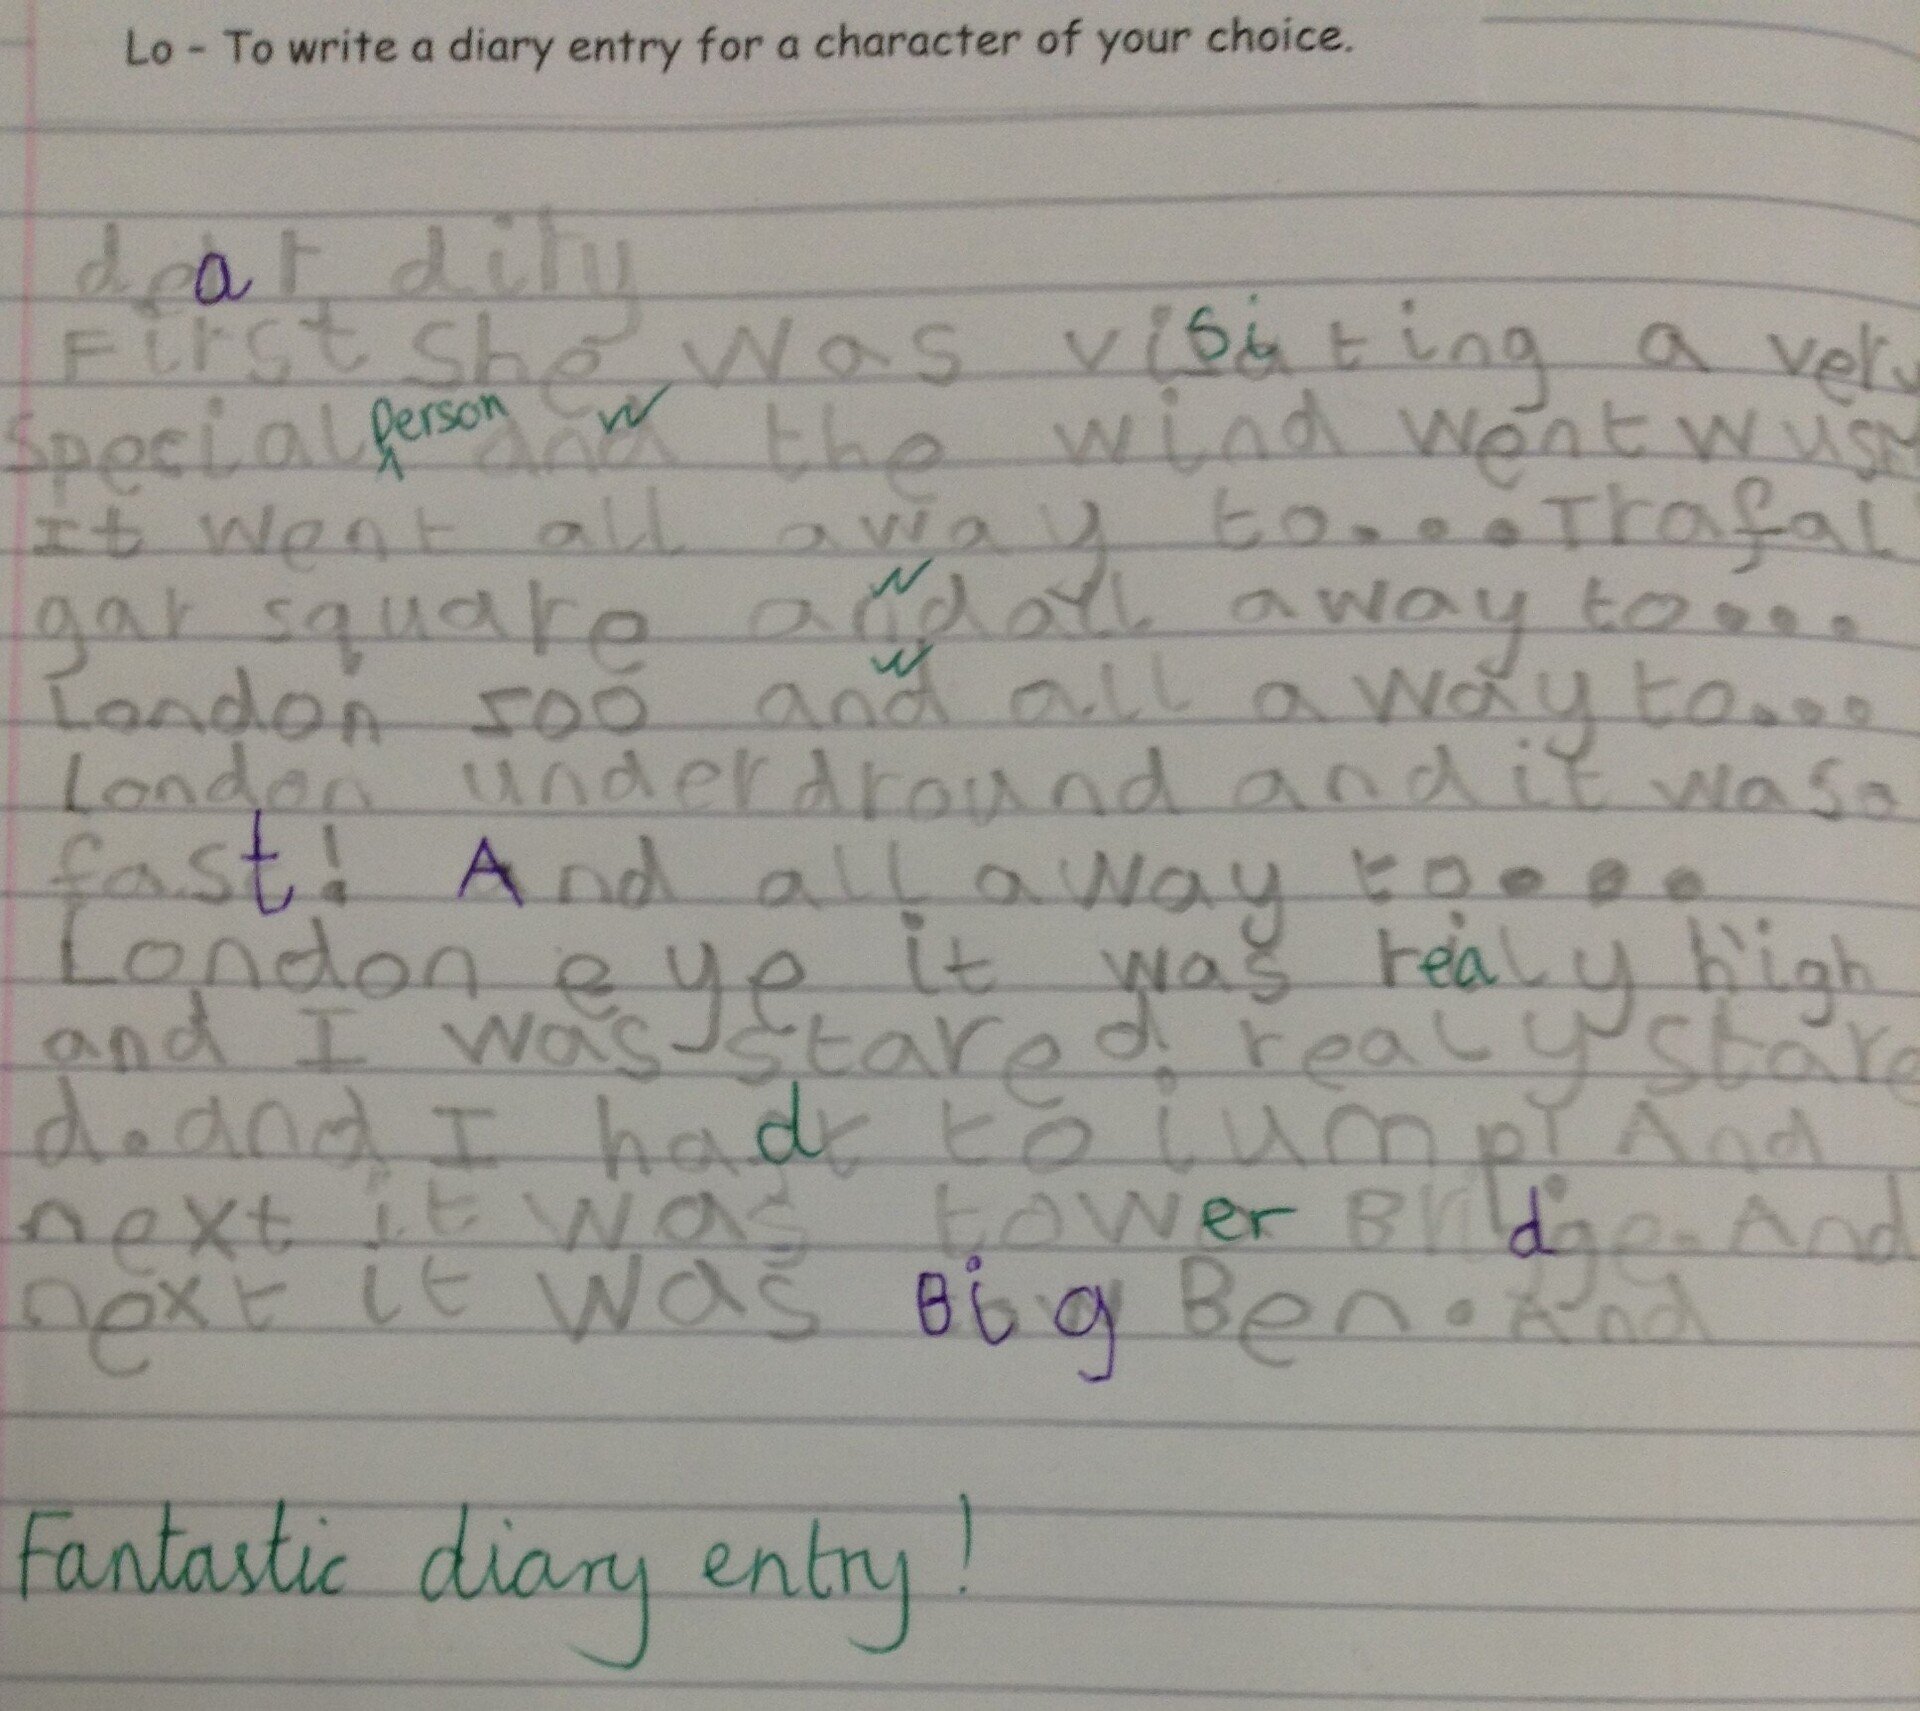 Lo - To write a diary entry for a character of your choice.
dear diry
First she was visiting a very
special person and the wind went wush
It went all away to....Trafal
gar square and all away to....
London zoo and all away to....
London underdround and it was a
fast! And all away to....
London eye it was realy high
and I was stared. realy stare
d. and I had to jump! And
next it was tower Bridge. And
next it was Big Ben. And
Fantastic diary entry!